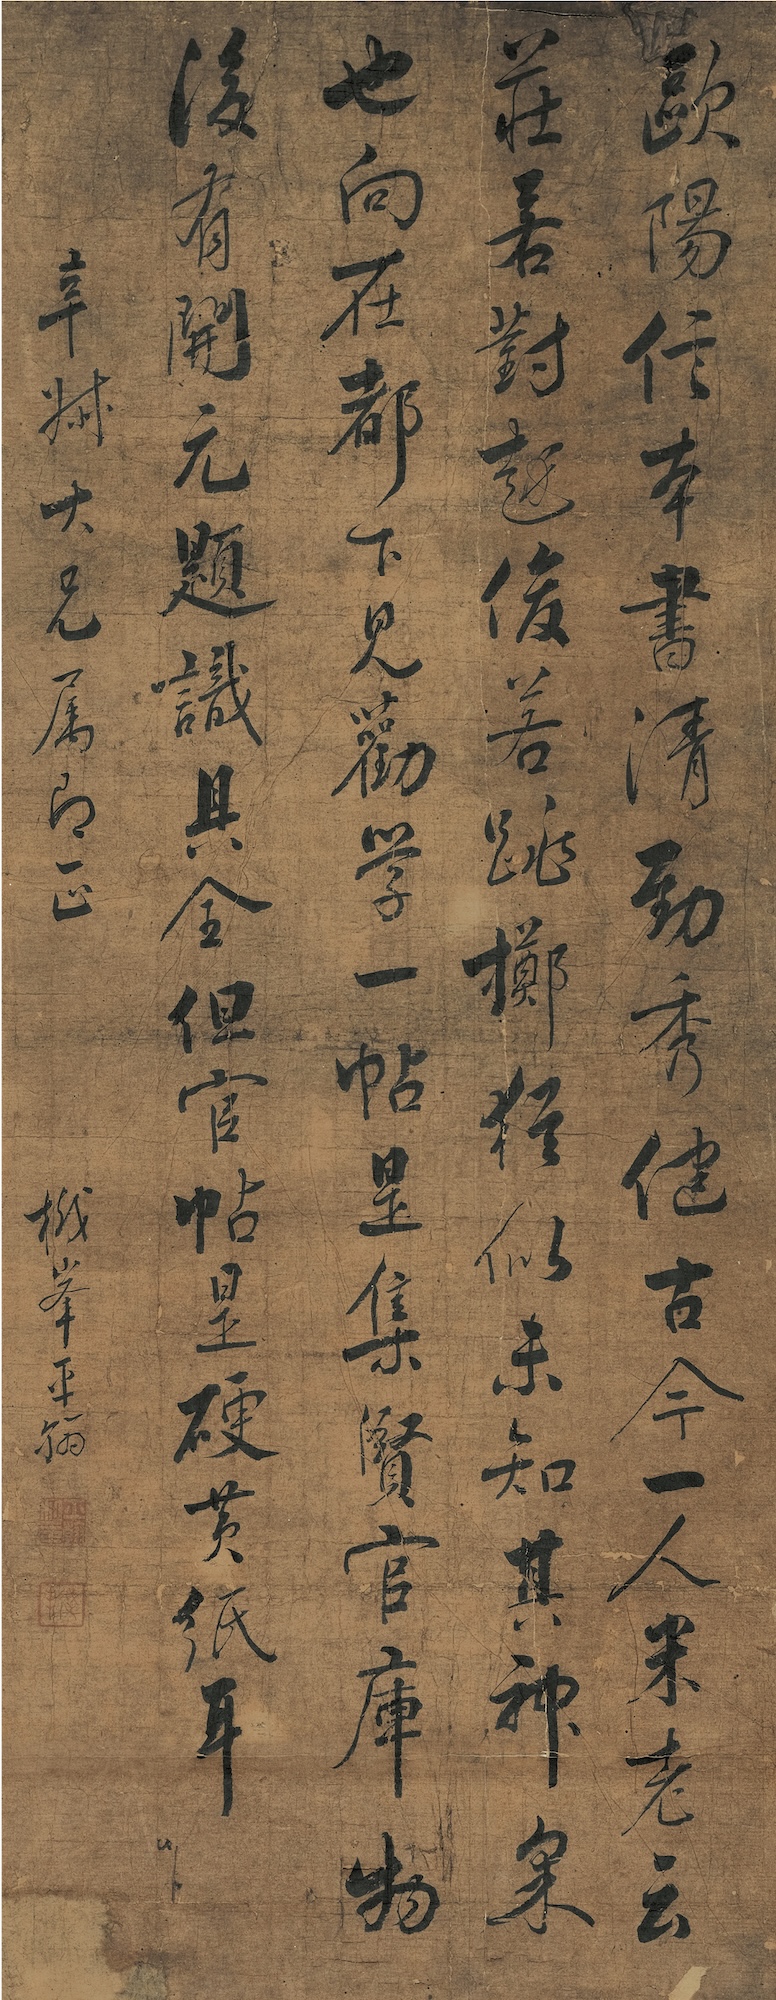 歐陽信本書清勁秀健古今一人米老云
莊若對越俊若跳擲猶似未知其神采
也向在都下見勸學一帖是集賢官庫物
後有開元題識具全但官帖是硬黃紙耳
辛 大兄属即正
峯平翁